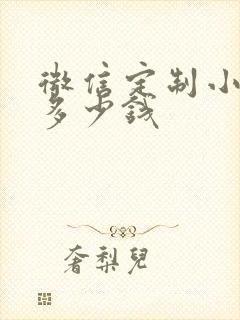 微信定制小
多少钱
奢梨儿